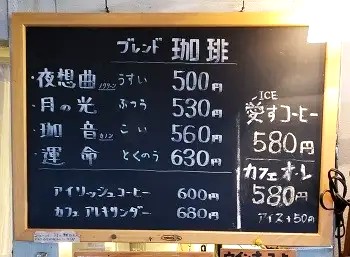 ブレンド 珈琲
・夜想曲 ノクターン うすい 500円
・月の光 ふつう 530円
・珈音 カノン こい 560円
・運命 とくのう 630円
アイリッシュコーヒー 600円
カフェアレキサンダー 680円
ICE
愛すコーヒー
580円
カフェオ・レ
580円
アイス+50円